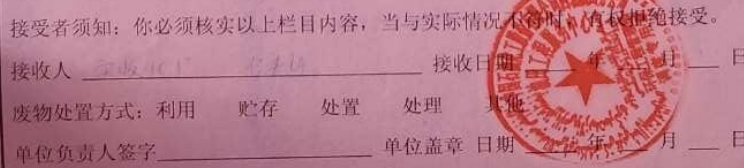 接受者须知：你必须核实以上栏目内容，当与实际情况不符时，有权拒绝接受。
接收人 接收日期 年 月 日
废物处置方式：利用 贮存 处置 处理 其他
单位负责人签字 单位盖章 日期 年 月 日